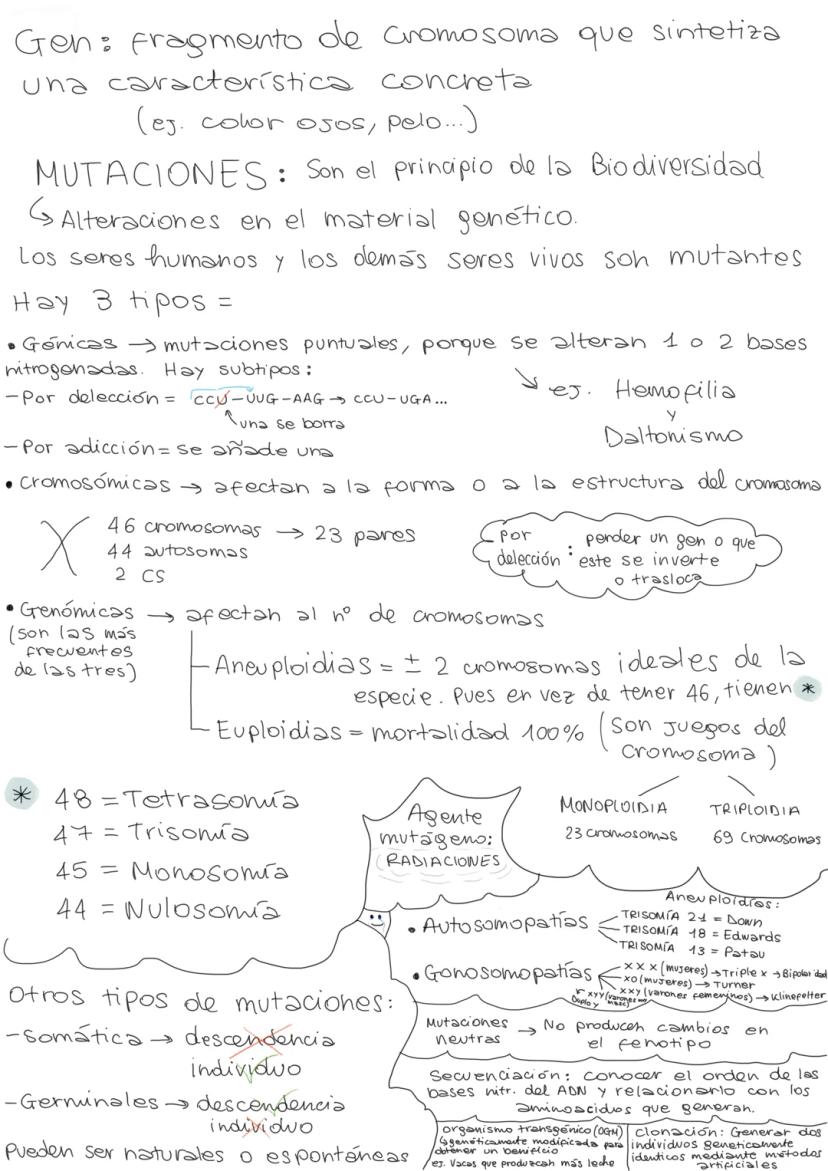 Gen: fragmento de cromosoma que sintetiza
una característica concreta
(ej. color ojos, pelo...)
MUTACIONES: Son el principio de la Biodiversidad
↳ Alteraciones en el material genético.
Los seres humanos y los demás seres vivos son mutantes
Hay 3 tipos =
• Génicas → mutaciones puntuales, porque se alteran 1 o 2 bases
nitrogenadas. Hay subtipos:
↘ ej. Hemofilia
y
Daltonismo
- Por delección = CCU-UUG-AAG → CCU-UGA...
una se borra
- Por adicción = se añade una
• Cromosómicas → afectan a la forma o a la estructura del cromosoma
46 cromosomas → 23 pares
44 autosomas
2 CS
Por delección: perder un gen o que
este se inverte
o trasloca
• Genómicas → afectan al nº de cromosomas
(son las más
frecuentes
de las tres)
Aneuploidias = ± 2 cromosomas ideales de la
especie. Pues en vez de tener 46, tienen *
Euploidias = mortalidad 100% (Son juegos del
cromosoma)
MONOPLOIDIA
23 cromosomas
TRIPLOIDIA
69 Cromosomas
* 48 = Tetrasomía
47 = Trisomía
45 = Monosomía
44 = Nulosomía
Agente
mutágeno:
RADIACIONES
Aneuploidías:
• Autosomopatías
TRISOMÍA 21 = Down
TRISOMÍA 18 = Edwards
TRISOMÍA 13 = Patau
• Gonosomopatías
XXX (mujeres) → Triple x → Bipolaridad
XO (mujeres) → Turner
XXY (varones femeninos) → Klinefelter
XYY (varones
Duplo y
Otros tipos de mutaciones:
- Somática → descendencia
individuo
- Germinales → descendencia
individuo
Pueden ser naturales o espontáneas
Mutaciones
neutras → No producen cambios en
el fenotipo
Secuenciación: conocer el orden de las
bases nitr. del ADN y relacionarlo con los
aminoacidos que generan.
organismo transgénico (OGM)
↳ genéticamente modificada para
obtener un beneficio
ej. Vacas que produzcan más leche
Clonación: Generar dos
individuos geneticamente
identicos mediante métodos
artificiales